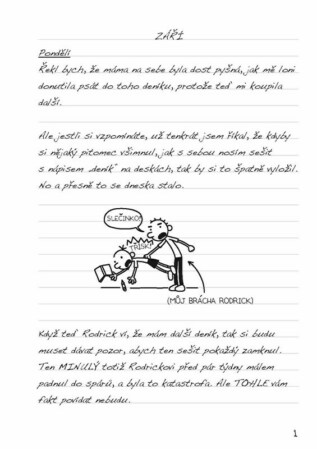 ZÁŘÍ
Pondělí
Řekl bych, že máma na sebe byla dost pyšná, jak mě loni
donutila psát do toho deníku, protože teď mi koupila
další.
Ale jestli si vzpomínáte, už tenkrát jsem říkal, že kdyby
si nějaký pitomec všimnul, jak s sebou nosím sešit
s nápisem „deník“ na deskách, tak by si to špatně vyložil.
No a přesně to se dneska stalo.
SLEČINKO!
TŘÍSK!
(MŮJ BRÁCHA RODRICK)
Když teď Rodrick ví, že mám další deník, tak si budu
muset dávat pozor, abych ten sešit pokaždý zamknul.
Ten MINULÝ totiž Rodrickovi před pár týdny málem
padnul do spárů, a byla to katastrofa. Ale TOHLE vám
fakt povídat nebudu.
1